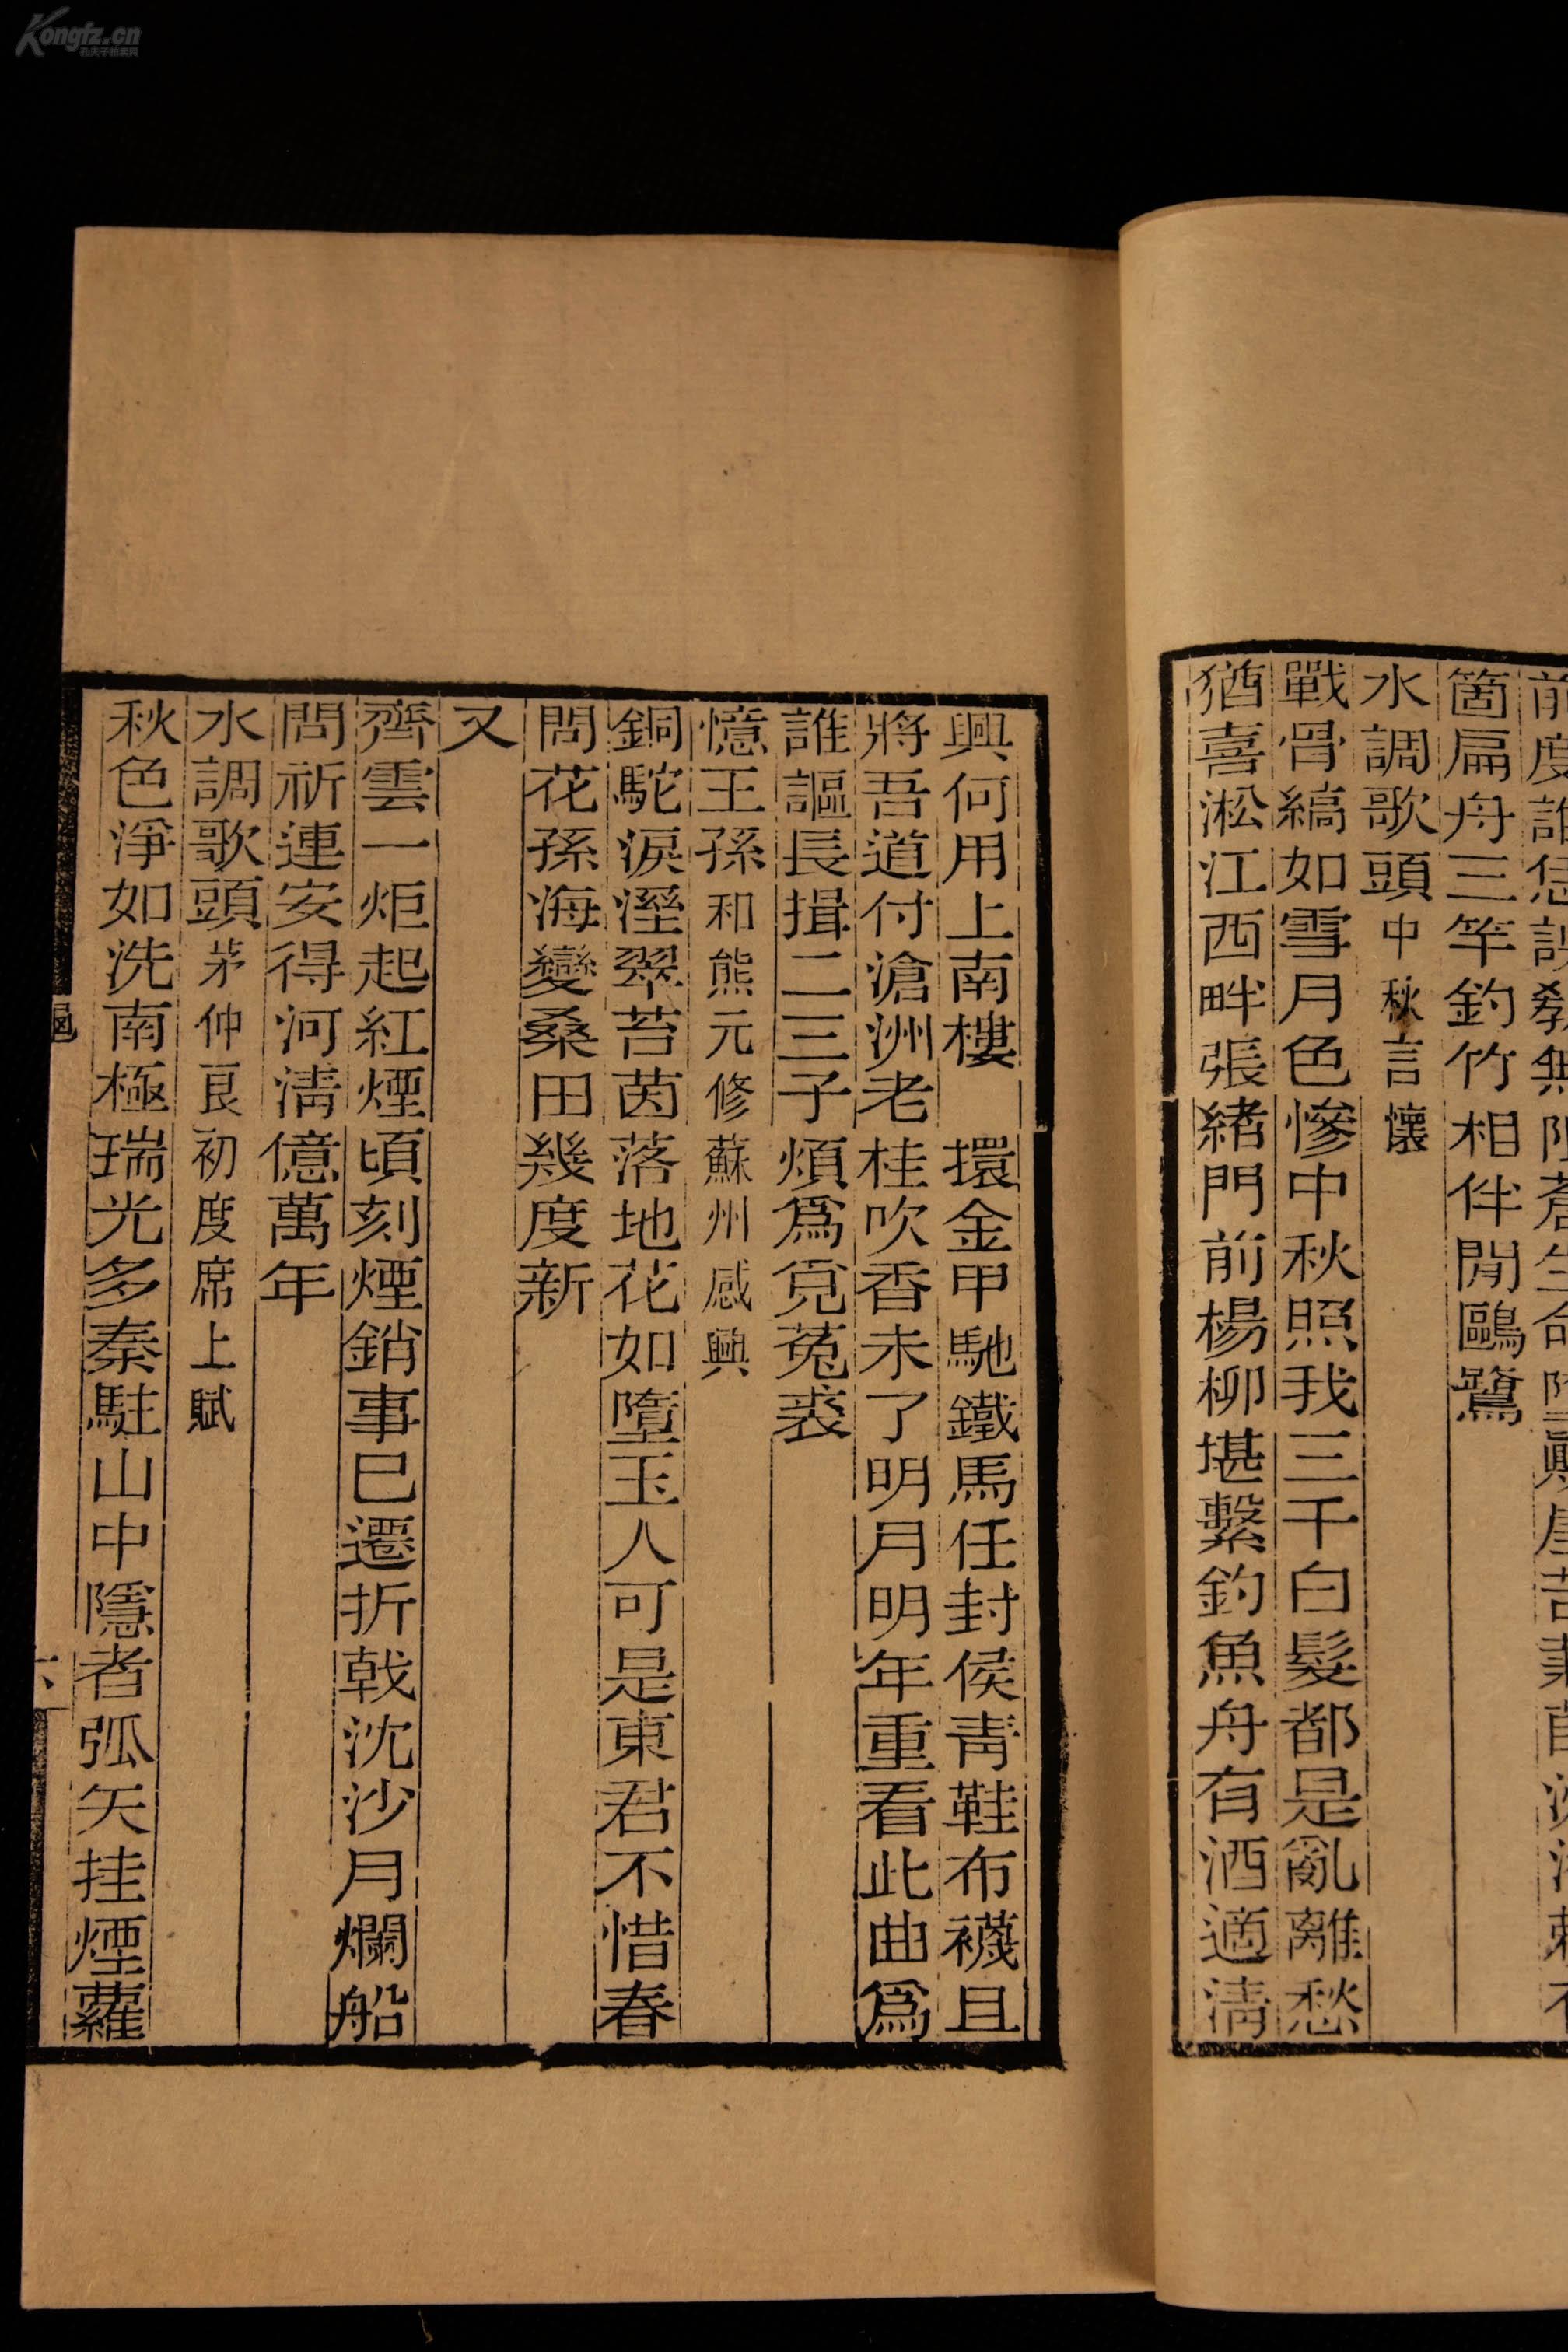 箇扁舟三竿釣竹相伴閒鷗鷺
水調歌頭中秋言懷
戰骨縞如雪月色慘中秋照我三千白髮都是亂離愁
猶喜淞江西畔張緒門前楊柳堪繫釣魚舟有酒適清
興何用上南樓　擐金甲馳鐵馬任封侯青鞋布襪且
將吾道付滄洲老桂吹香未了明月明年重看此曲為
誰謳長揖二三子煩為覓菟裘
憶王孫和熊元修蘇州感興
銅駝淚溼翠苔茵落地花如墮玉人可是東君不惜春
問花孫海變桑田幾度新
又
齊雲一炬起紅煙頃刻煙銷事已遷折戟沈沙月爛船
問祈連安得河清億萬年
水調歌頭茅仲良初度席上賦
秋色淨如洗南極瑞光多秦駐山中隱者弧矢挂煙蘿
六
Kongfz.cn